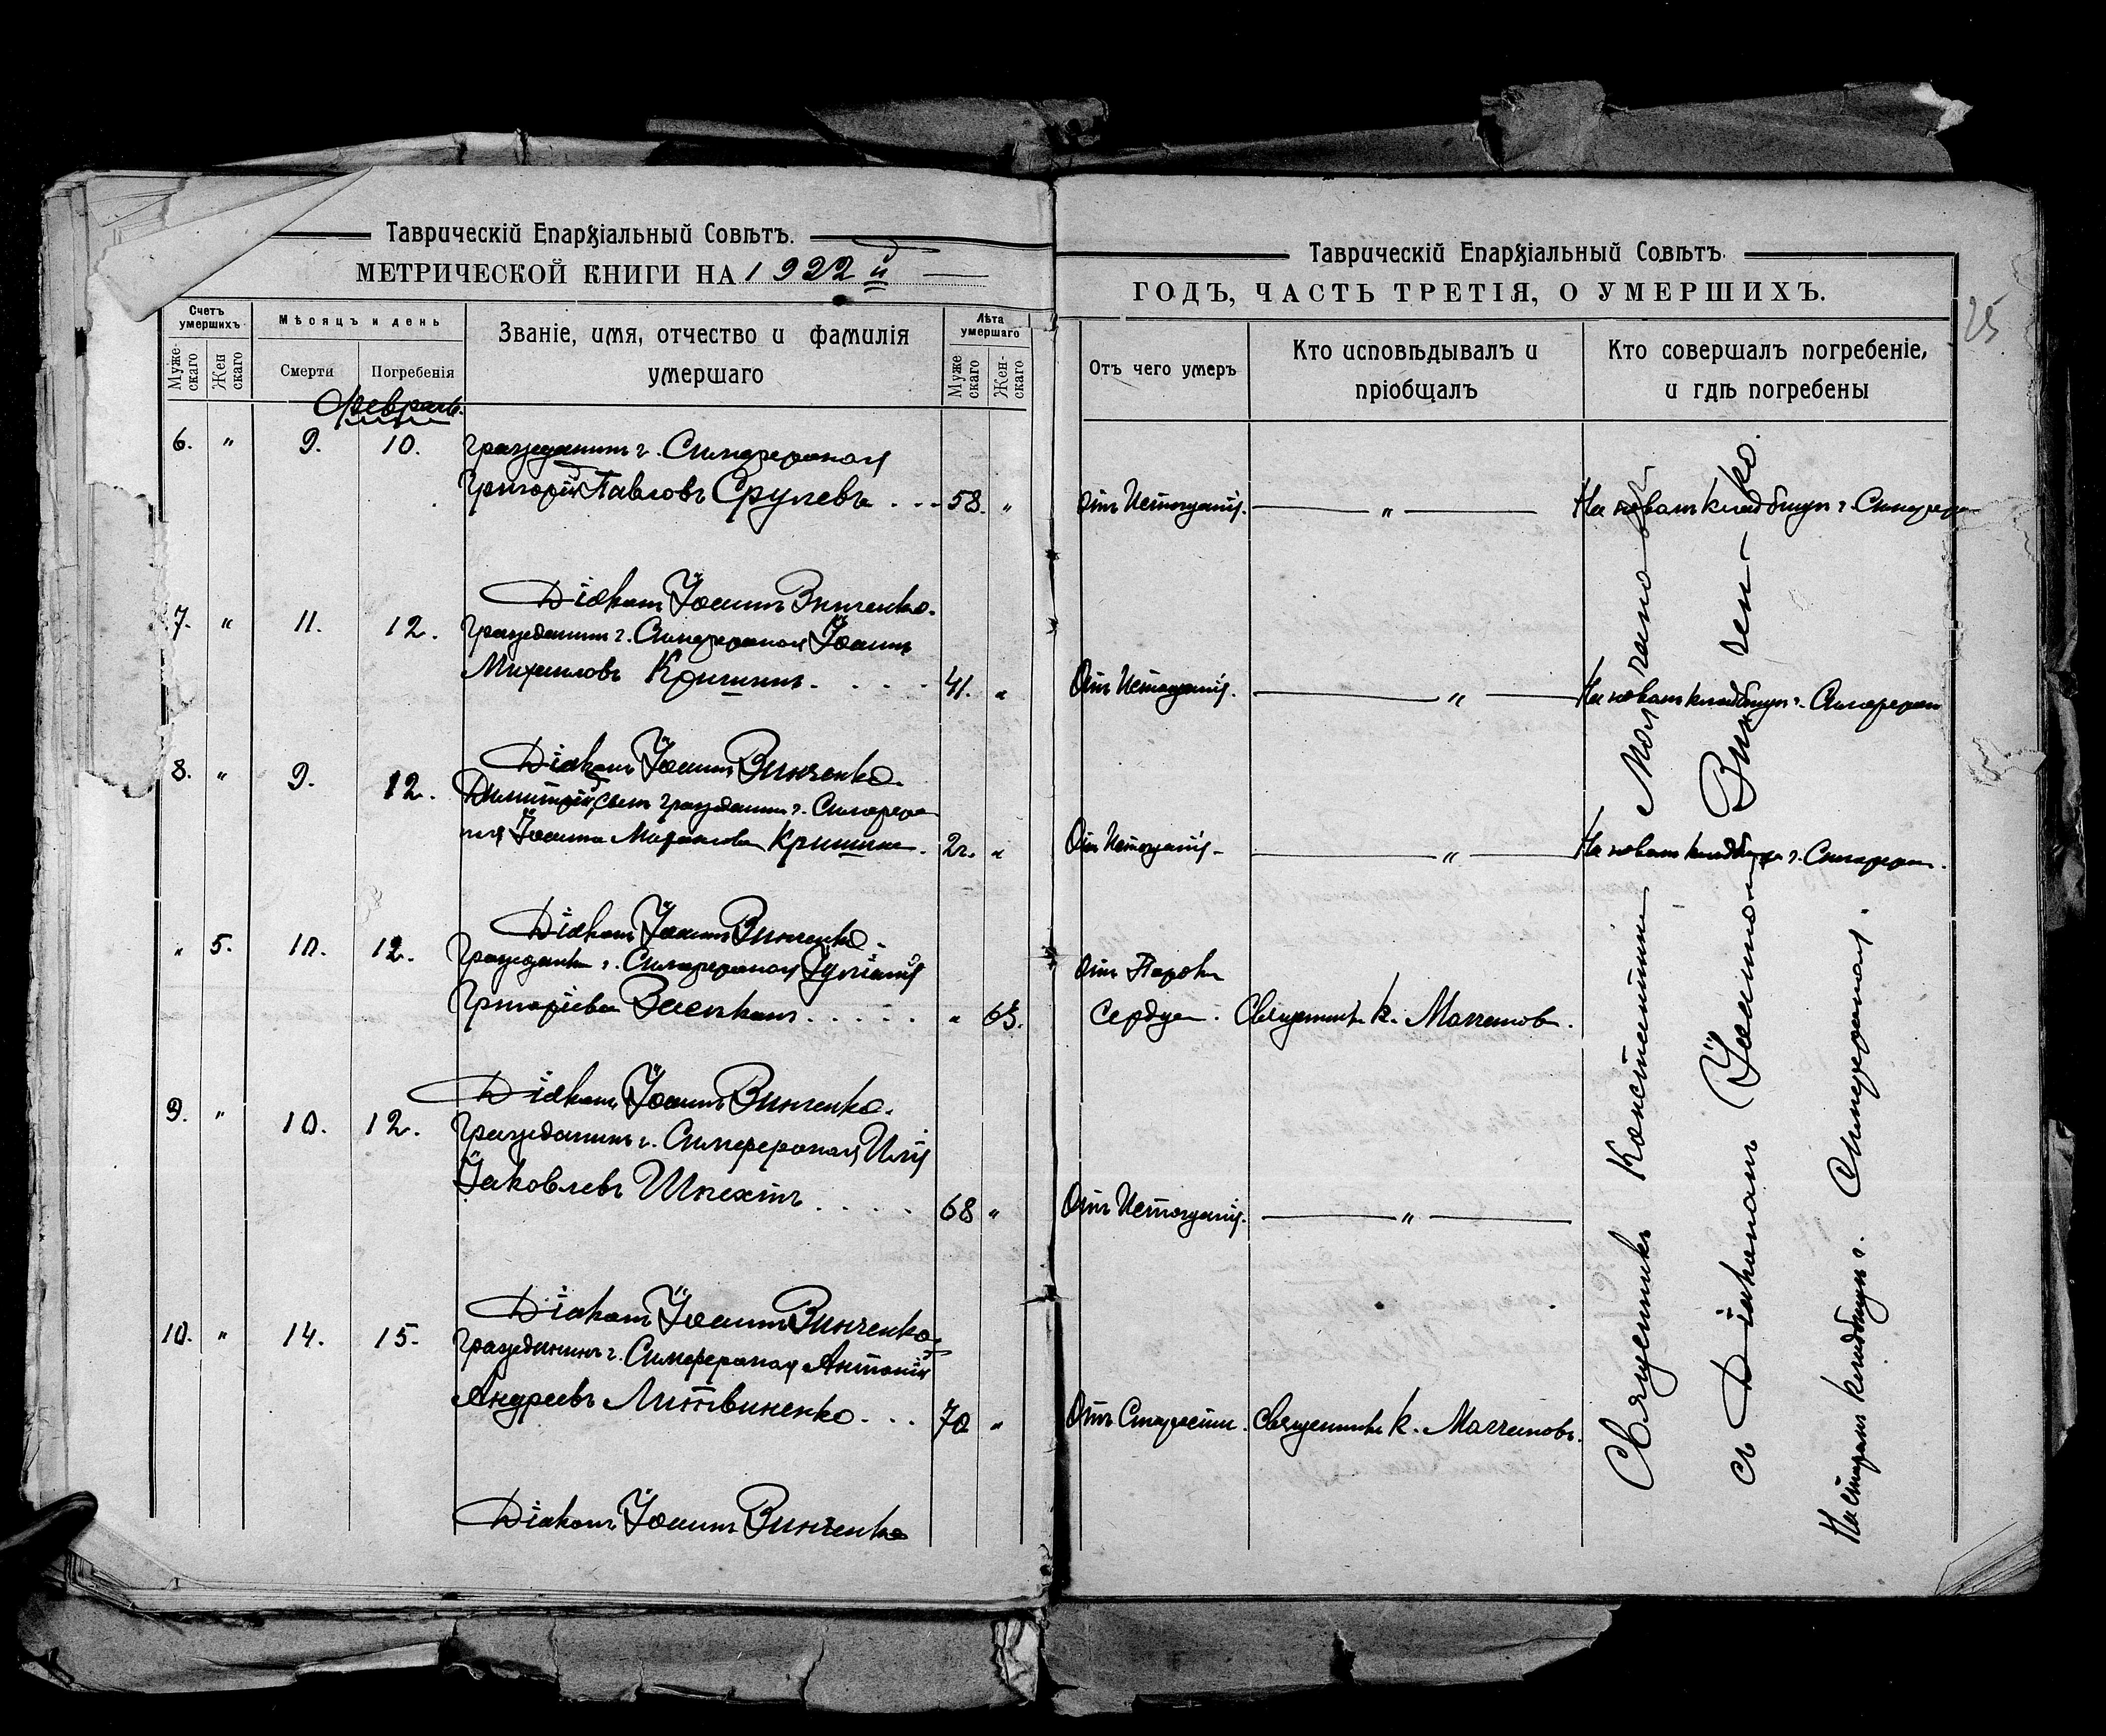 Таврическій Епархіальный Совѣтъ.
МЕТРИЧЕСКОЙ КНИГИ НА 1922 й
Счетъ умершихъ
Мѣсяцъ и день
Званіе, имя, отчество и фамилія умершаго
Лѣта умершаго
Муже-скаго
Жен скаго
Смерти
Погребенія
Муже скаго
Жен-скаго
Февраль.
6. " 9. 10. Гражданинъ г. Симферополя
Григорій Павловъ Срулевъ . . . 58. "
Діаконъ Іоаннъ Винченко.
7. " 11. 12. Гражданинъ г. Симферополя Іоаннъ
Михаиловъ Кришинъ. . . . . 41. "
Діаконъ Іоаннъ Винченко.
8. " 9. 12. Димитрій, сынъ гражданина г. Симферо
поля Іоанна Михаилова Кришина. 2г. "
Діаконъ Іоаннъ Винченко.
" 5. 10. 12. Гражданка г. Симферополя Іуліанія
Григоріева . . . . . " 63.
Діаконъ Іоаннъ Винченко.
9. " 10. 12. Гражданинъ г. Симферополя Илія
Іаковлевъ Шпехтъ . . . . 68 "
Діаконъ Іоаннъ Винченко.
10. " 14. 15. Гражданинъ г. Симферополя Антоній
Андреевъ Литвиненко. . . 70 "
Діаконъ Іоаннъ Винченко
Таврическій Епархіальный Совѣтъ.
ГОДЪ, ЧАСТЬ ТРЕТІЯ, О УМЕРШИХЪ.
25
Отъ чего умеръ
Кто исповѣдывалъ и пріобщалъ
Кто совершалъ погребеніе, и гдѣ погребены
Отъ Истощенія. " На новомъ кладбищѣ г. Симферо
Отъ Истощенія. " На новомъ кладбищѣ г. Симфероп
Отъ Истощенія. " На новомъ кладбищѣ г. Симфероп.
Отъ Порока
Сердца. Священникъ К. Молчановъ.
Отъ Истощенія. "
Отъ Старости. Священникъ К. Молчановъ.
Священникъ Константинъ Молчановъ
съ Діакономъ Іоанномъ Винченко.
На старомъ кладбищѣ г. Симферополя.